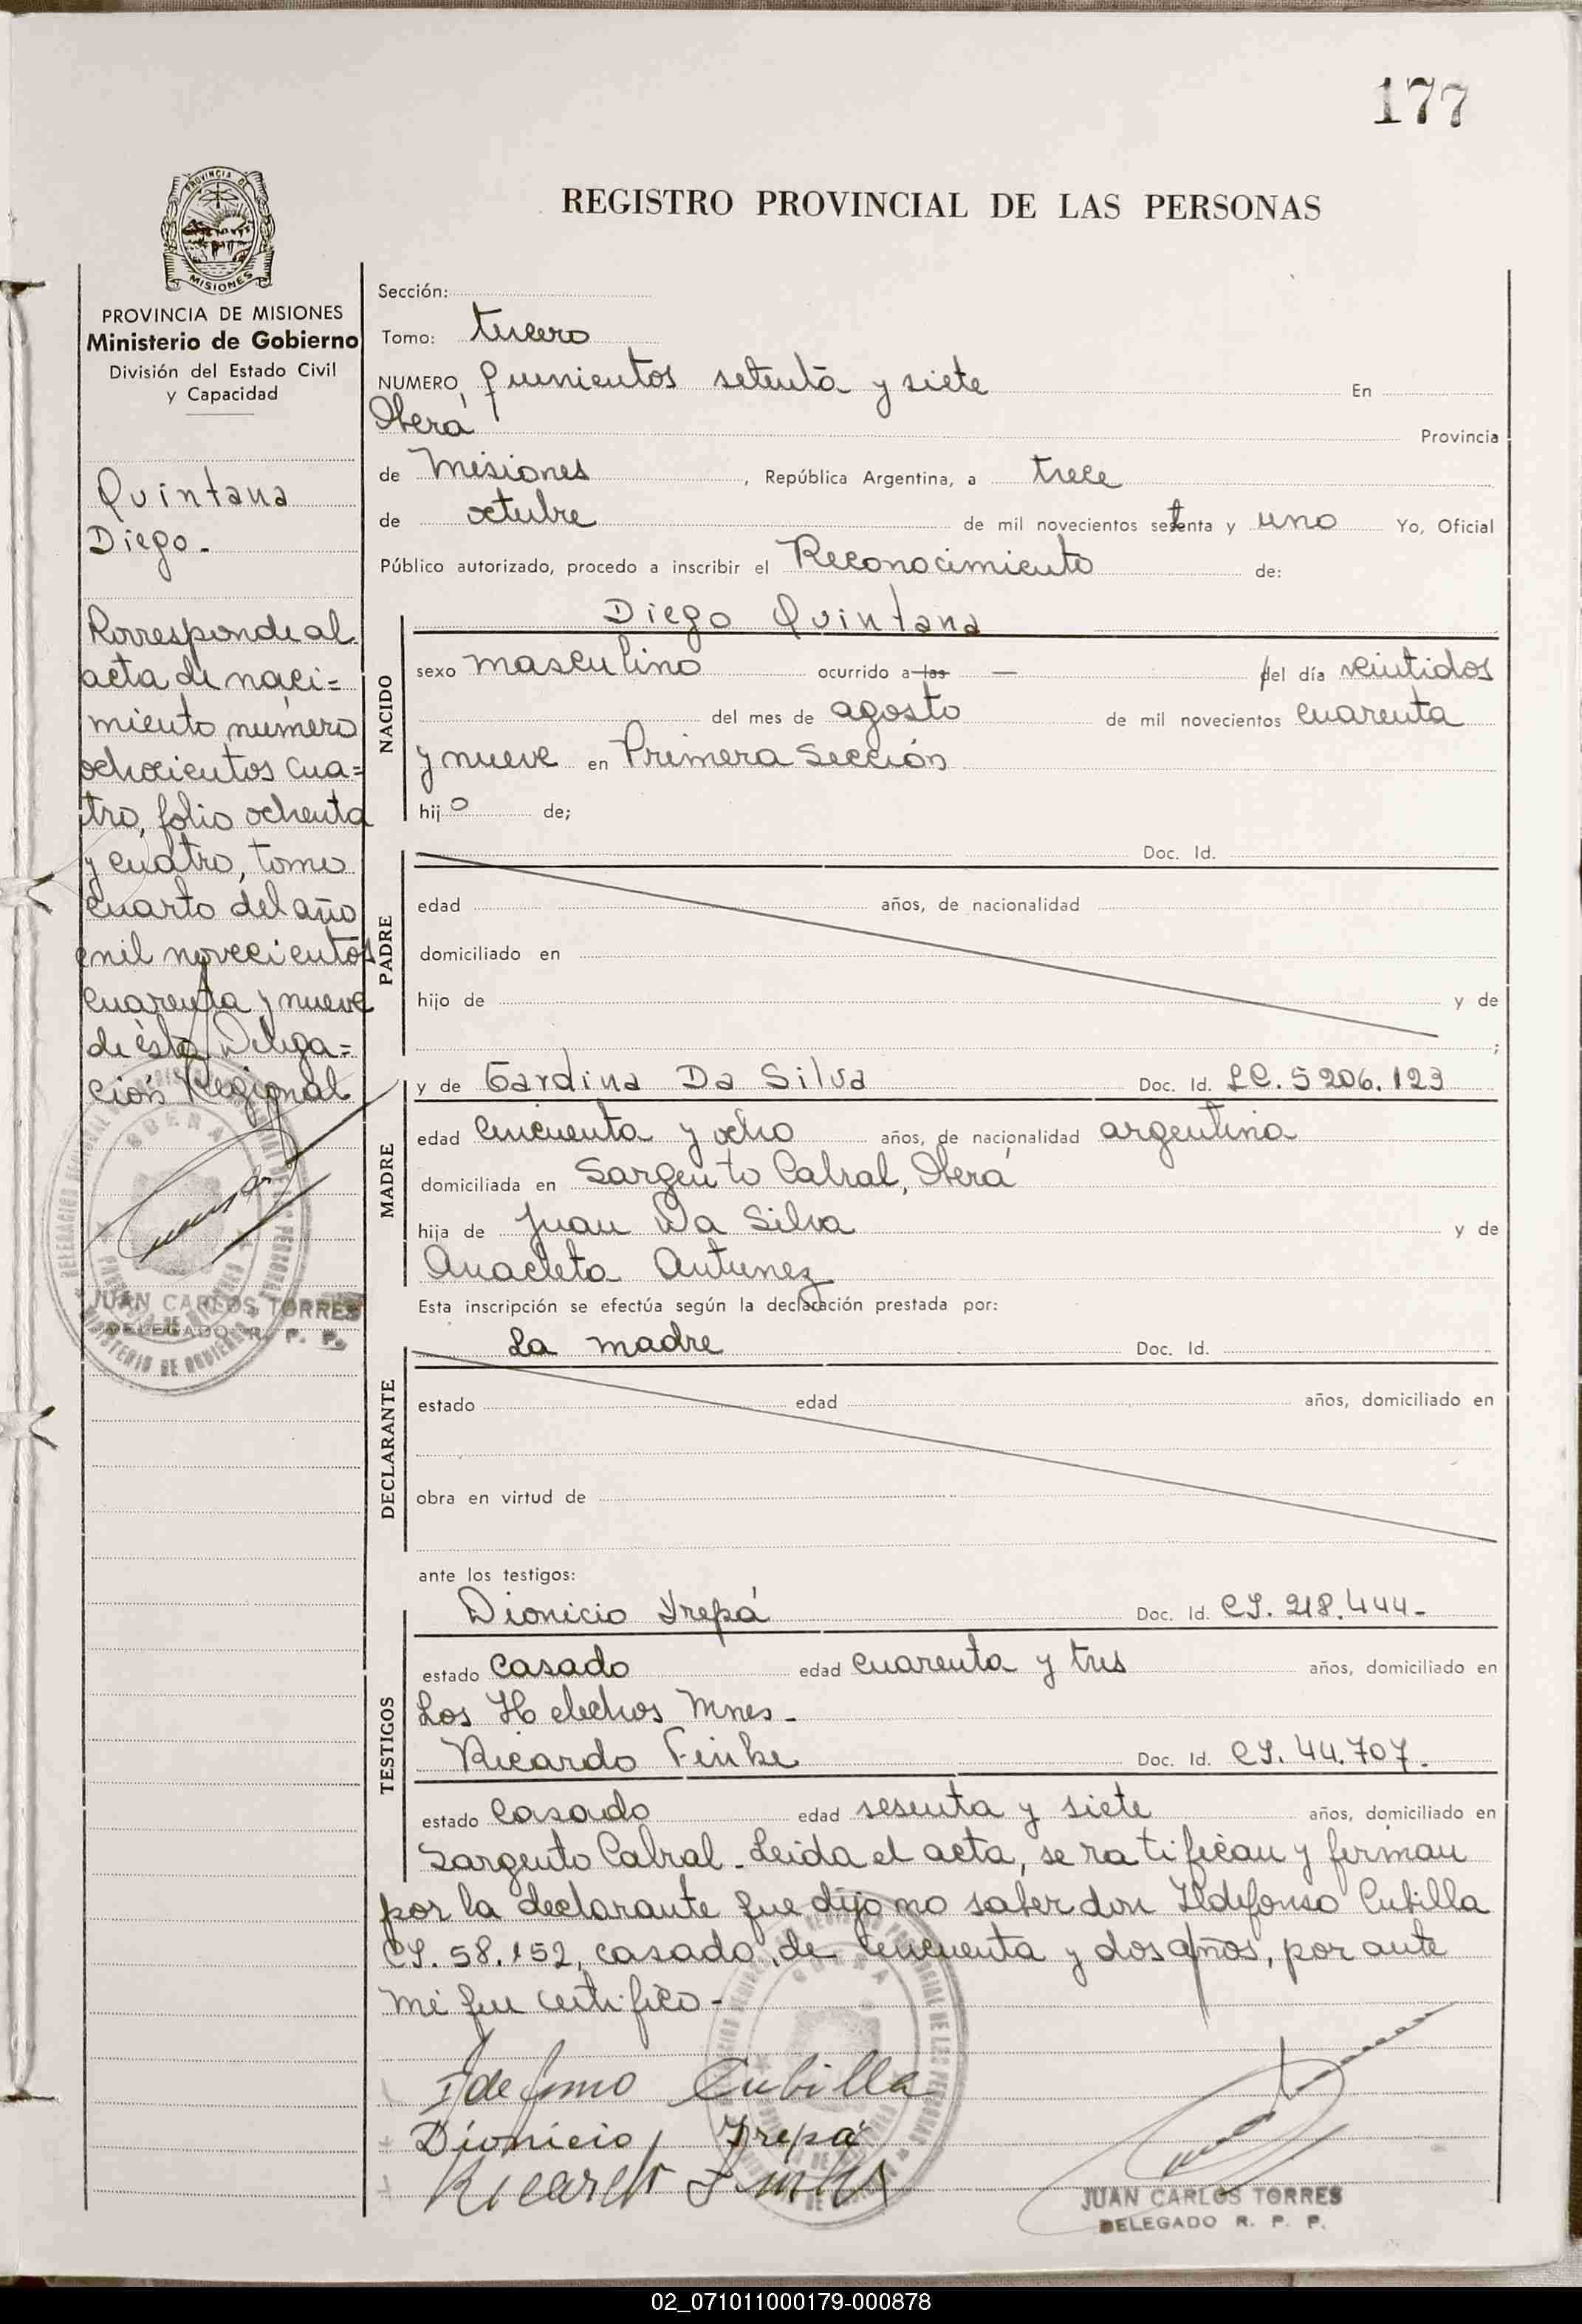 177
REGISTRO PROVINCIAL DE LAS PERSONAS
PROVINCIA DE MISIONES
Ministerio de Gobierno
División del Estado Civil
y Capacidad
Quintana
Diego.-
Corresponde al
acta de naci=
miento número
ochocientos cua=
tro, folio ochenta
y cuatro, tomo
cuarto del año
mil novecientos
cuarenta y nueve
de ésta Delega=
ción Regional
JUAN CARLOS TORRES
DELEGADO R. P. P.
Sección:
Tomo: tercero
NUMERO quinientos setenta y siete En
Oberá Provincia
de Misiones, República Argentina, a trece
de octubre de mil novecientos setenta y uno Yo, Oficial
Público autorizado, procedo a inscribir el Reconocimiento de:
NACIDO
Diego Quintana
sexo masculino ocurrido a las — del día veintidos
del mes de agosto de mil novecientos cuarenta
y nueve en Primera Sección
hijo de;
PADRE
Doc. Id.
edad años, de nacionalidad
domiciliado en
hijo de y de
;
MADRE
y de Gardina Da Silva Doc. Id. LC. 5206.123
edad cincuenta y ocho años, de nacionalidad argentina
domiciliada en Sargento Cabral, Oberá
hija de Juan Da Silva y de
Anacleta Antunez
Esta inscripción se efectúa según la declaración prestada por:
DECLARANTE
La madre Doc. Id.
estado edad años, domiciliado en
obra en virtud de
ante los testigos:
TESTIGOS
Dionicio Yrepá Doc. Id. CI. 218.444-
estado casado edad cuarenta y tres años, domiciliado en
Los Helechos Mnes-
Ricardo Finke Doc. Id. CI. 44.707.
estado casado edad sesenta y siete años, domiciliado en
Sargento Cabral - Leida el acta, se ratifican y firman
por la declarante que dijo no saber don Ildefonso Cubilla
CI. 58.152, casado, de cincuenta y dos años, por ante
mi que certifico-
Idefonso Cubilla
Dionicio Yrepá
Ricardo Finke
JUAN CARLOS TORRES
DELEGADO R. P. P.
02_071011000179-000878